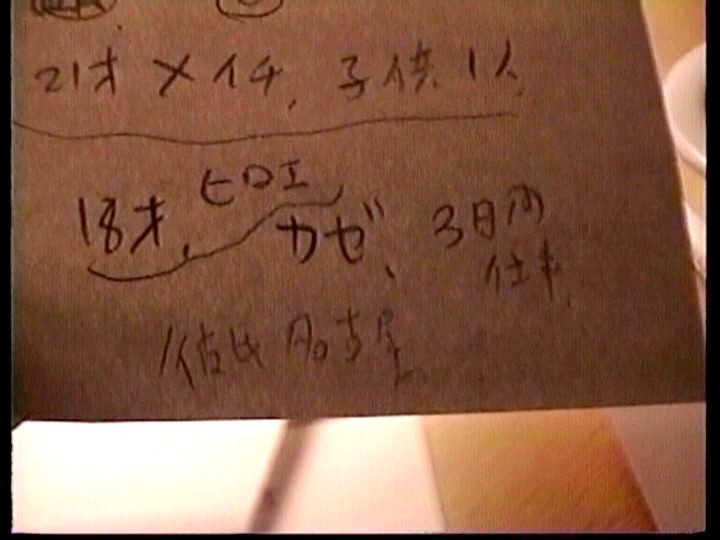 21才 メイチ、子供 1人
ヒロエ
18才、カゼ、3日間
仕事、
彼氏 名古屋